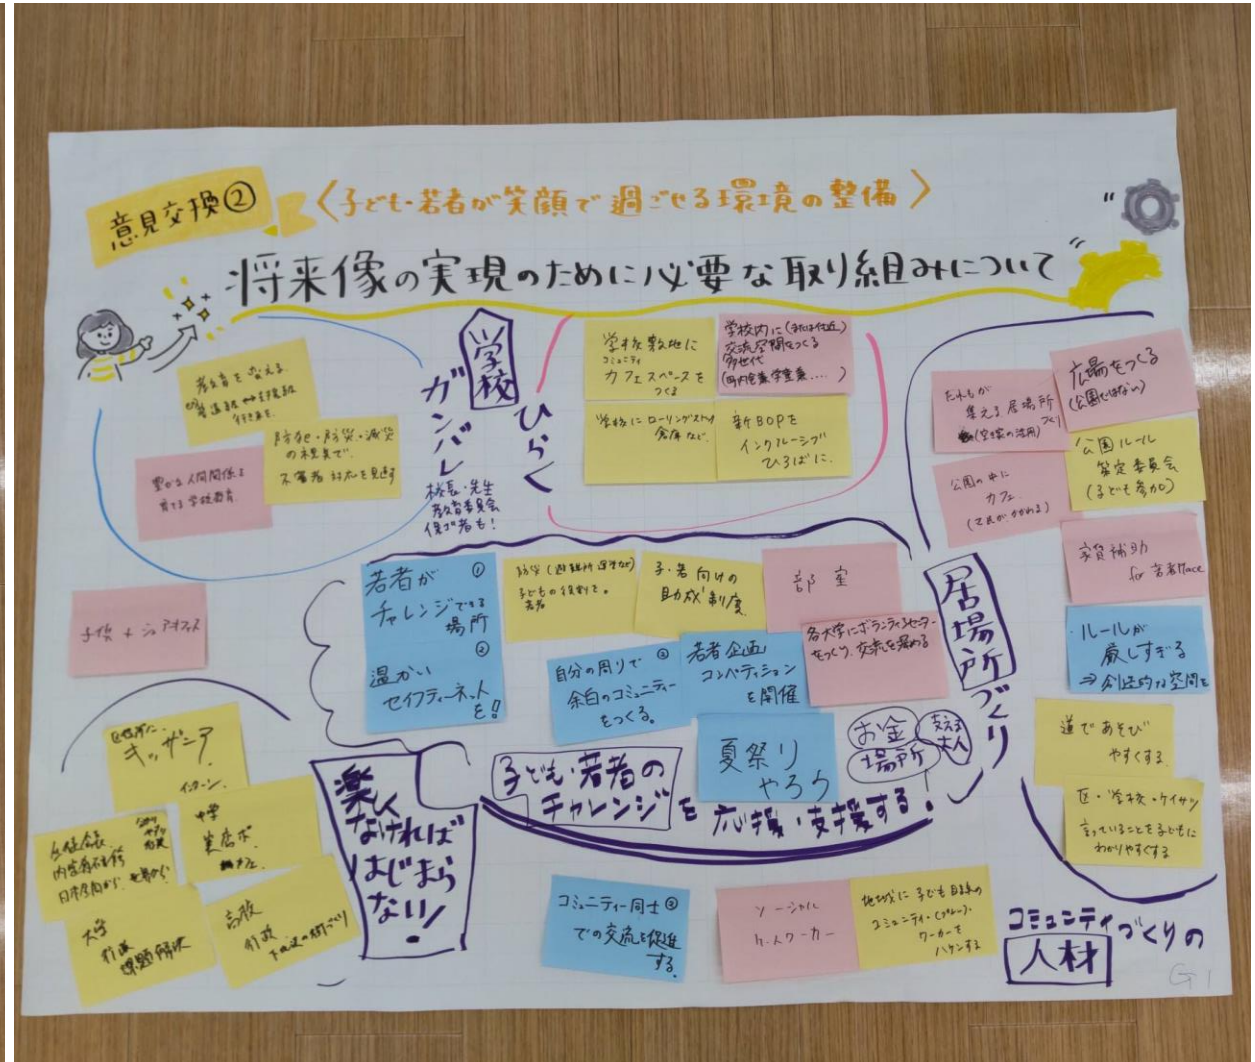 意見交換②
〈子ども・若者が笑顔で過ごせる環境の整備〉
将来像の実現のために必要な取り組みについて
教育を変える
普通級や支援級
行き来を。
防犯・防災・減災
の視点で。
不審者対応を見直す
豊かな人間関係を
育てる学校教育
学校
ガンバレ
校長・先生
教育委員会
保ゴ者も!
ひらく
学校敷地に
コミュニティ
カフェスペースを
つくる
学校内に(または付近)
交流空間をつくる
多世代
学校にローリングストック
倉庫など.
新BOPを
インクルーシブ
ひろばに.
だれもが
集える居場所
づくり
(空き家の活用)
広場をつくる
(公園ではない)
公園の中に
カフェ
公園ルール
策定委員会
(子ども参加)
家賃補助
for 若者Place
ルールが
厳しすぎる
⇒創造的な空間を
道であそび
やすくする
区・学校・ケイサツ
言っていることを子どもに
わかりやすくする
居場所づくり
若者が①
チャレンジできる
場所
②
温かい
セイフティーネット
を!!
防災(避難所運営など)
子どもの役割を。
若者
子・若向けの
助成制度
部室
各大学にボランティアセンター
をつくり、交流を深める
自分の周りで③
余白のコミュニティー
をつくる。
若者企画
コンペティション
を開催
夏祭り
やろう
お金
場所
支える
大人
子ども・若者の
チャレンジを応援・支援する!
楽しく
なければ
はじまら
ない!
キッザニア
中学
大学
行政
課題解決
高校
行政
コミュニティー同士
での交流を促進
する。
ソーシャル
ワーカー
地域に子ども目線の
コミュニティ・
ワーカーを
ハケンする
コミュニティづくりの
人材
G1